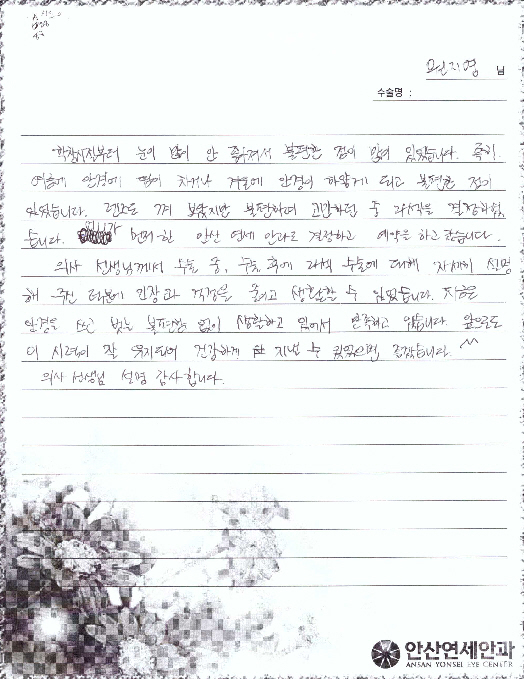 원지영 님
수술명 :
학창시절부터 눈이 많이 안 좋아져서 불편한 점이 많이 있었습니다. 특히
여름에 안경에 땀이 차거나 겨울에 안경이 하얗게 되고 불편한 점이
있었습니다. 렌즈도 껴 보았지만 불편하여 고민하던 중 라식을 결정하였
습니다. 안산 연세 안과로 결정하고 예약을 하고 왔습니다.
의사 선생님께서 수술 중, 수술 후에 라식 수술에 대해 자세히 설명
해 주신 때문에 긴장과 걱정을 생활할 수 있었습니다. 지금은
안경을 벗는 불편함 없이 생활하고 있어서 만족하고 있습니다. 앞으로도
이 시력이 잘 유지되어 건강하게 지낼 수 있었으면 좋겠습니다. ^^
의사 선생님 설명 감사합니다.
안산연세안과
ANSAN YONSEI EYE CENTER